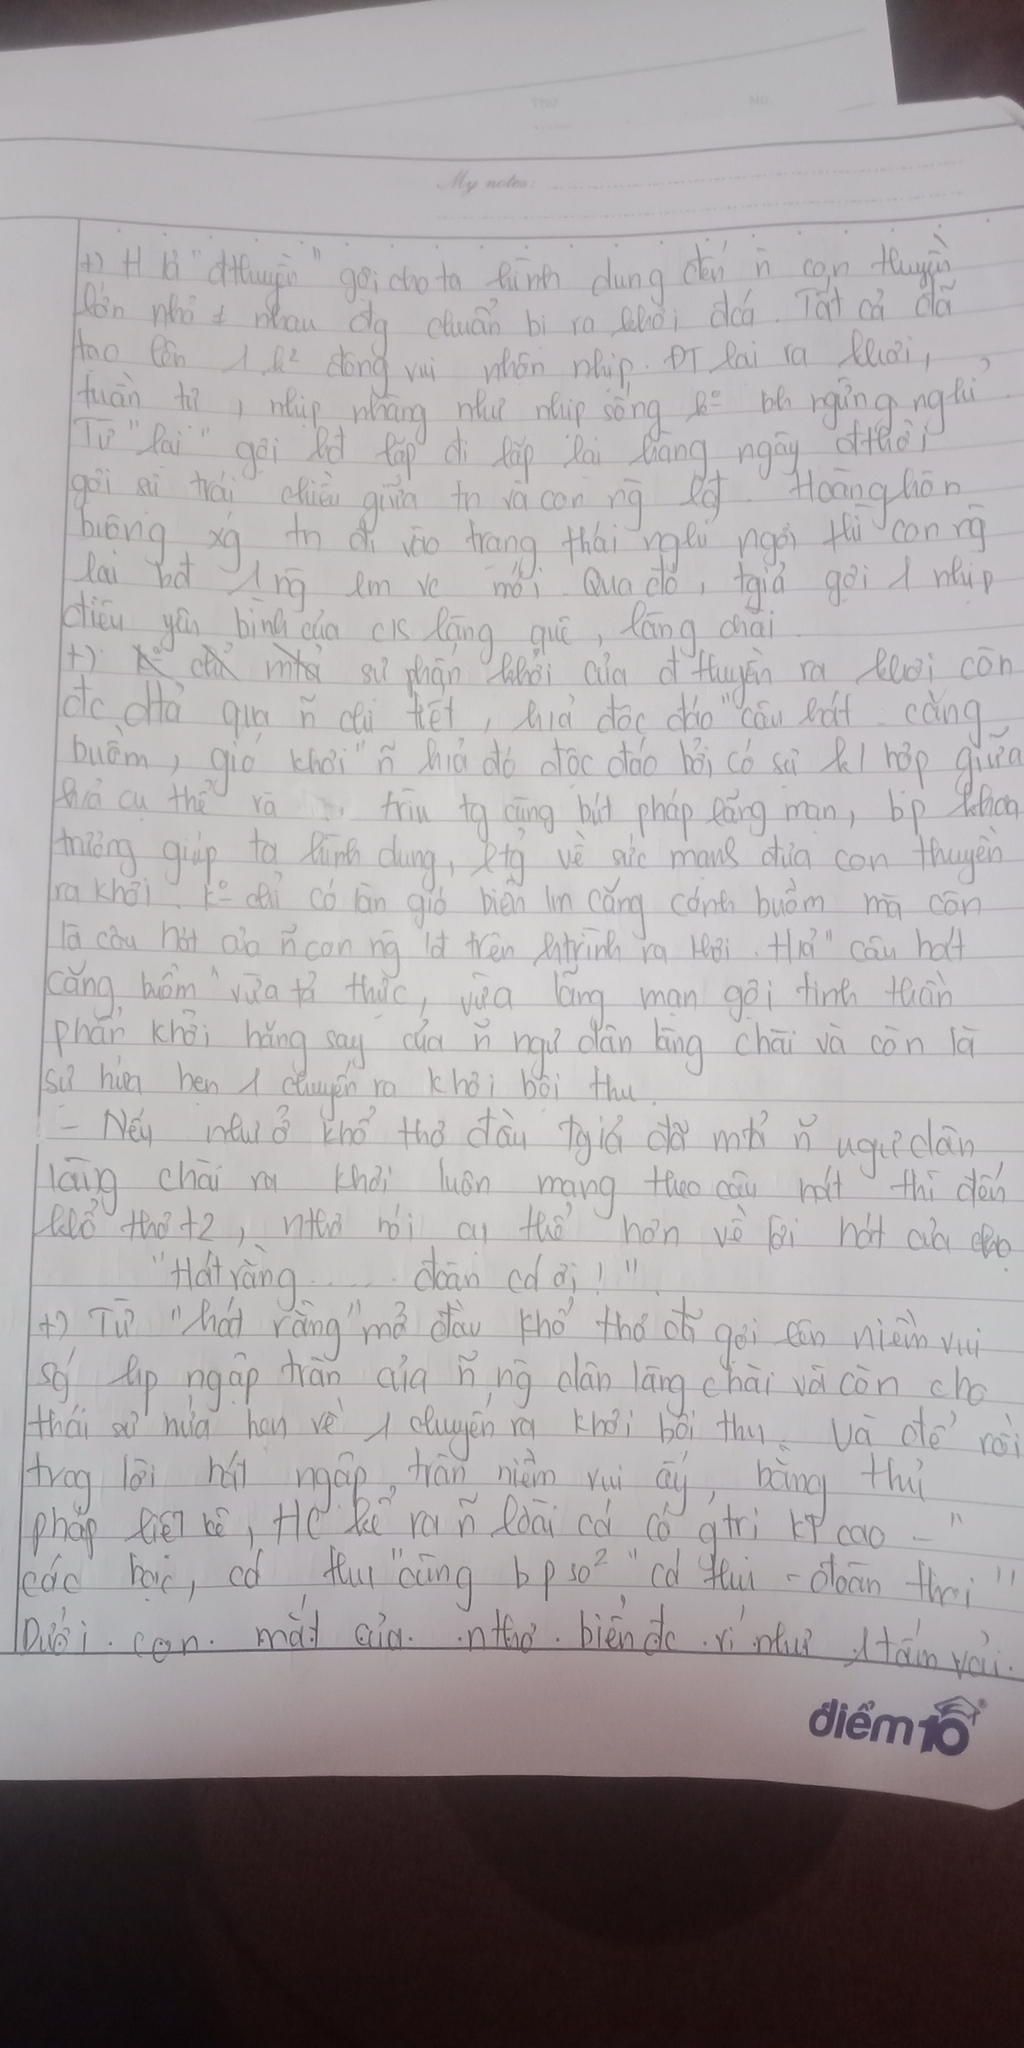 My notes:
+) H ả "đthuyền" gợi cho ta hình dung đến ñ con thuyền
lớn nhỏ ≠ nhau đg chuẩn bị ra khơi đcá. Tất cả đã
tạo lên 1 k² đông vui nhộn nhịp. ĐT lại ra khơi,
tuần tự, nhịp nhàng như nhịp sống k° bh ngừng nghỉ.
Từ "lại" gợi lđ lặp đi lặp lại hàng ngày đthời
gợi sự trái chiều giữa tn và con ng̃ lđ. Hoàng hôn
buông xg tn đi vào trạng thái nghỉ ngơi thì con ng̃
lại bđ 1 ng̃ lm vc mới. Qua đó, tgiả gợi 1 nhịp
điệu yên bình của c/s làng quê, làng chài.
+) sự phấn khởi của đ thuyền ra khơi còn
đc dtả qua ñ chi tiết, h/ả độc đáo "câu hát căng
buồm, gió khơi" ñ h/ả đó độc đáo bởi có sự k/ hợp giữa
h/ả cụ thể và trừu tg cùng bút pháp lãng mạn, bp khoa
trương giúp ta hình dung, ltg về sức mạnh đưa con thuyền
ra khơi. k° chỉ có làn gió biển lm căng cánh buồm mà còn
là câu hát của ñ con ng̃ lđ trên htrình ra khơi. H/ả "câu hát
căng buồm" vừa tả thực, vừa lãng mạn gợi tinh thần
phấn khởi hăng say của ñ ngư dân làng chài và còn là
sự hứa hẹn 1 chuyến ra khơi bội thu.
- Nếu như ở khổ thơ đầu tgiả đã mtả ñ ngư dân
làng chài ra khơi luôn mang theo câu hát thì đến
khổ thơ t2, nthơ nói cụ thể hơn về lời hát của
"Hát rằng ..... đoàn cá ơi!"
+) Từ "hát rằng" mở đầu khổ thơ đã gợi lên niềm vui
sg ngập tràn của ñ ng̃ dân làng chài và còn cho
thái sự hứa hẹn về 1 chuyến ra khơi bội thu. Và để rồi
trog lời hát ngập tràn niềm vui ấy, bằng thủ
pháp liệt kê, HC kể ra ñ loài cá có gtrị KT cao - "
các bạc, cá thu "cùng bp so² "cá thu - đoàn thoi"
Dưới con mắt của nthơ biển đc ví như 1 tấm vải.
điểm10